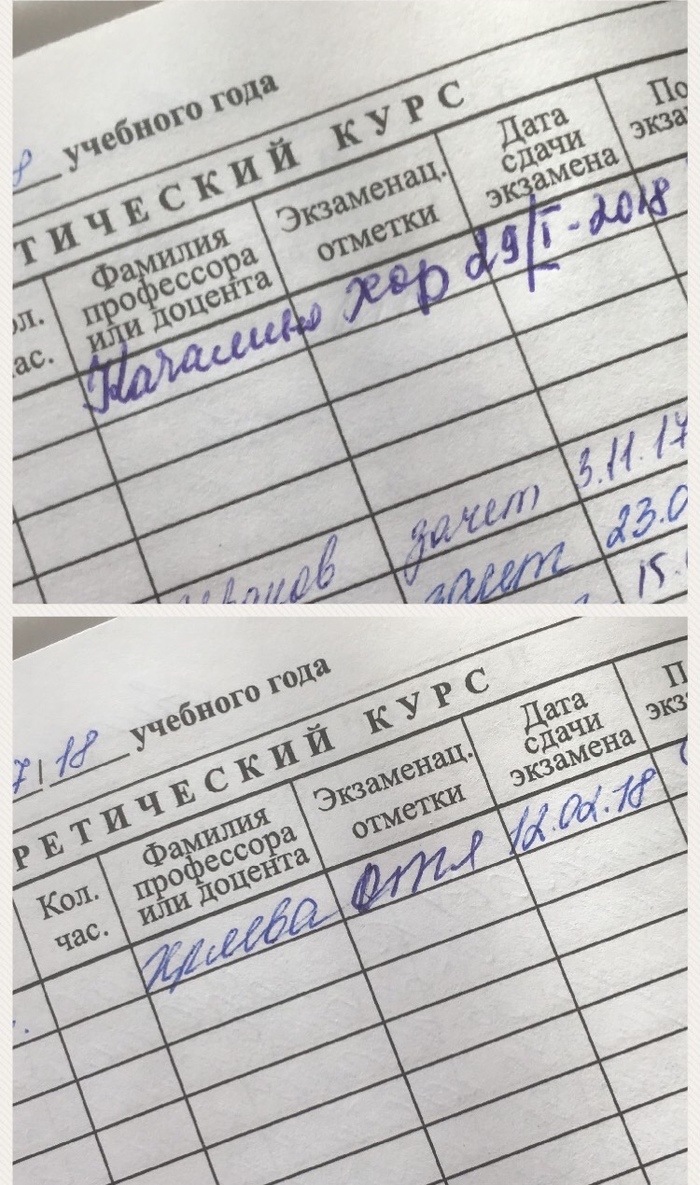 8 учебного года
ТИЧЕСКИЙ КУРС
ол.
час.
Фамилия
профессора
или доцента
Экзаменац.
отметки
Дата
сдачи
экзамена
По
экза
хор 29/I-2018
зачет 3.11.17
зачет 23.0
15.
7/18 учебного года
РЕТИЧЕСКИЙ КУРС
Кол.
час.
Фамилия
профессора
или доцента
Экзаменац.
отметки
Дата
сдачи
экзамена
П
экз
отл 12.02.18